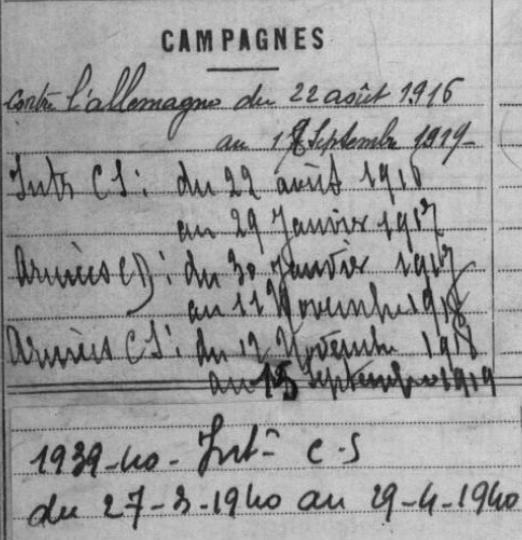 CAMPAGNES
contre l'allemagne du 22 août 1916
au Septembre 1919
Intr CS: du 22 août 1916
au 29 Janvier 1917
Armées CD: du 30 Janvier 1917
au 11 Novembre 1918
Armées CS: du 12 Novembre 1918
au 15 Septembre 1919
1939-40- Intr- C-S
du 27-3-1940 au 29-4-1940